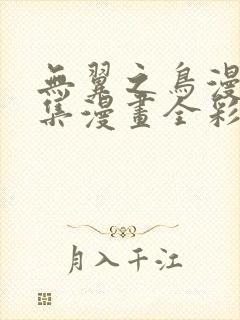 無翼之鳥漫
集漫畫全彩
月入千江